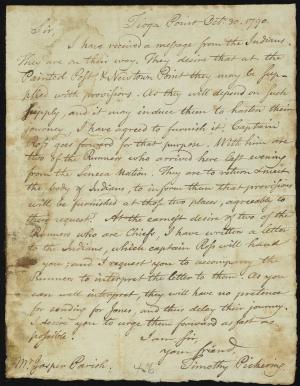 Tioga Point Oct. 30. 1790.
Sir,
I have received a message from the Indians.
They are on their way. They desire that at the
Painted Post & Newtown Point they may be sup-
plied with provisions. As they will depend on such
supply, and it may induce them to hasten their
journey, I have agreed to furnish it. Captain
Ross goes forward for that purpose. With him are
two of the Runners who arrived here last evening
from the Seneca Nation. They are to return & meet
the body of Indians, to inform them that provisions
will be furnished at those two places, agreeably to
their request. At the earnest desire of two of the
Runners who are Chiefs, I have written a letter
to the Indians, which captain Ross will hand
to you; and I request you to accompany the
Runners to interpret the letter to them. As you
can well interpret, they will have no pretence
for sending for Jones, and thus delay their journey.
I desire you to urge them forward as fast as
possible.
I am Sir
your friend,
Timothy Pickering
Mr. Jasper Parish.